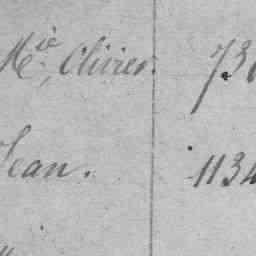 Mie Olivier. 73
Jean. 1134